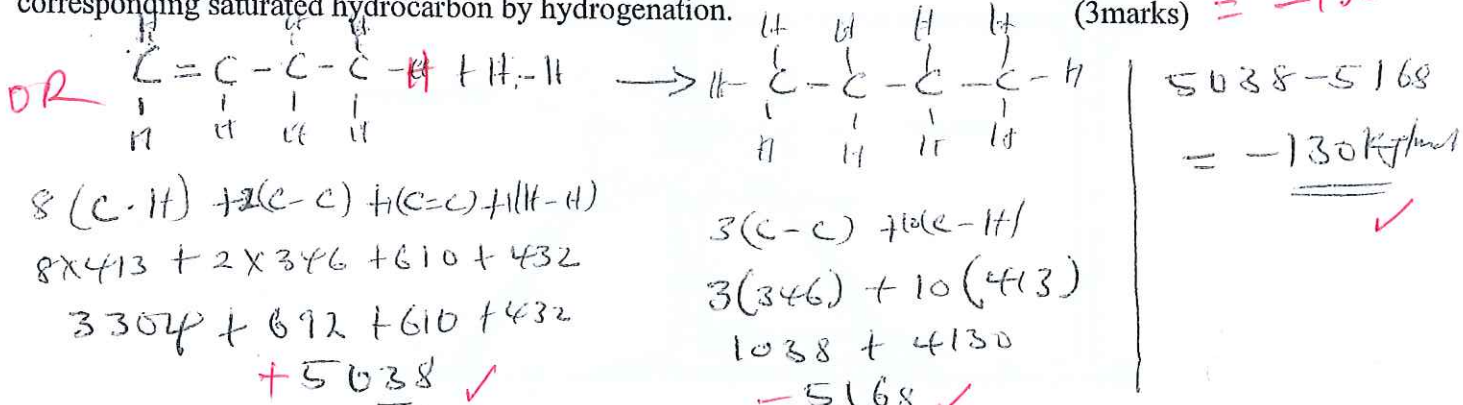 corresponding saturated hydrocarbon by hydrogenation. (3marks) =
H H H H H H H
OR C = C - C - C - H + H - H → H - C - C - C - C - H
H H H H H H H H
8(C-H) + 2(C-C) + 1(C=C) + 1(H-H)
8×413 + 2×346 + 610 + 432
3304 + 692 + 610 + 432
+5038 ✓
3(C-C) + 10(C-H)
3(346) + 10(413)
1038 + 4130
-5168 ✓
5038-5168
= -130 KJ/mol
✓